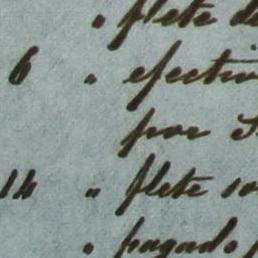 " flete de
6 " efectiv
por S
14 " flete so
" pagado p